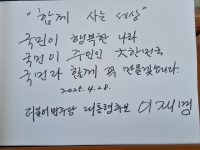 "함께 사는 세상"
국민이 행복한 나라
국민이 주인인 大한민국,
국민과 함께 꼭 만들겠습니다.
2025. 4. 28.
더불어민주당 대통령후보 이재명